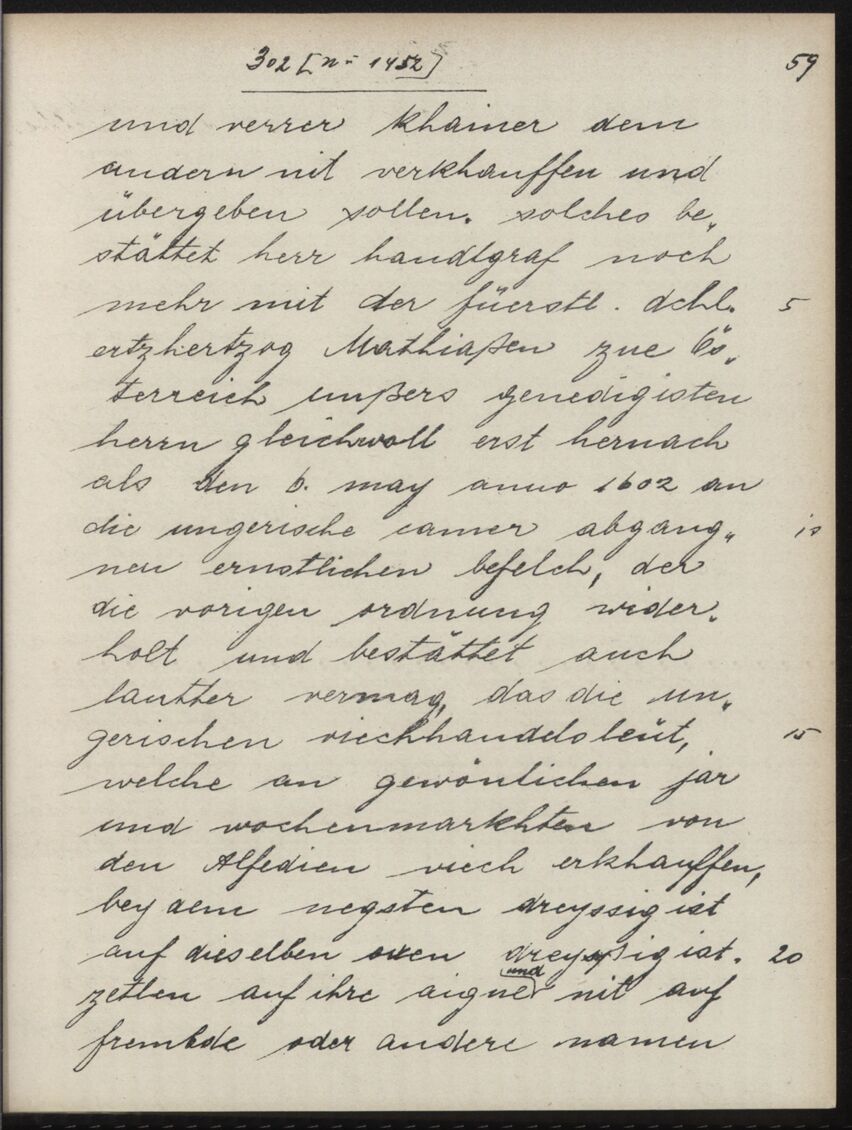 302 [n = 1452] 59
und verrer khainer dem
andern nit verkhauffen und
übergeben sollen. solches be„
stättet herr handlgraf noch
mehr mit der füerstl. dchl. 5
ertzhertzog Mathiaßen zue Ös„
terreich unßers genedigisten
herrn gleichwoll erst hernach
als den 6. may anno 1602 an
die ungerische camer abgang„ 10
nen ernstlichen befelch, der
die vorigen ordnung wider„
holt und bestättet auch
lautter vermag, das die un„
gerischen viechhandelsleüt, 15
welche an gewönlichen jar
und wochenmarkhten von
den Alfedien viech erkhauffen,
bey dem negsten dreyssigist
auf dieselben oxen dreyssigist. 20
zetlen auf ihre aigne und nit auf
frembde oder andere namen